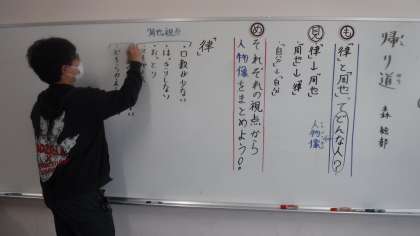 帰り道
森 絵都
も 「律」と「周也」ってどんな人?
人物像
見 「律」→「周也」
「周也」→「律」
「自分」→「自分」
め それぞれの視点から
人物像をまとめよう!
「律」
周也の視点
・口数が少ない
・はっきりしない
・おっとり